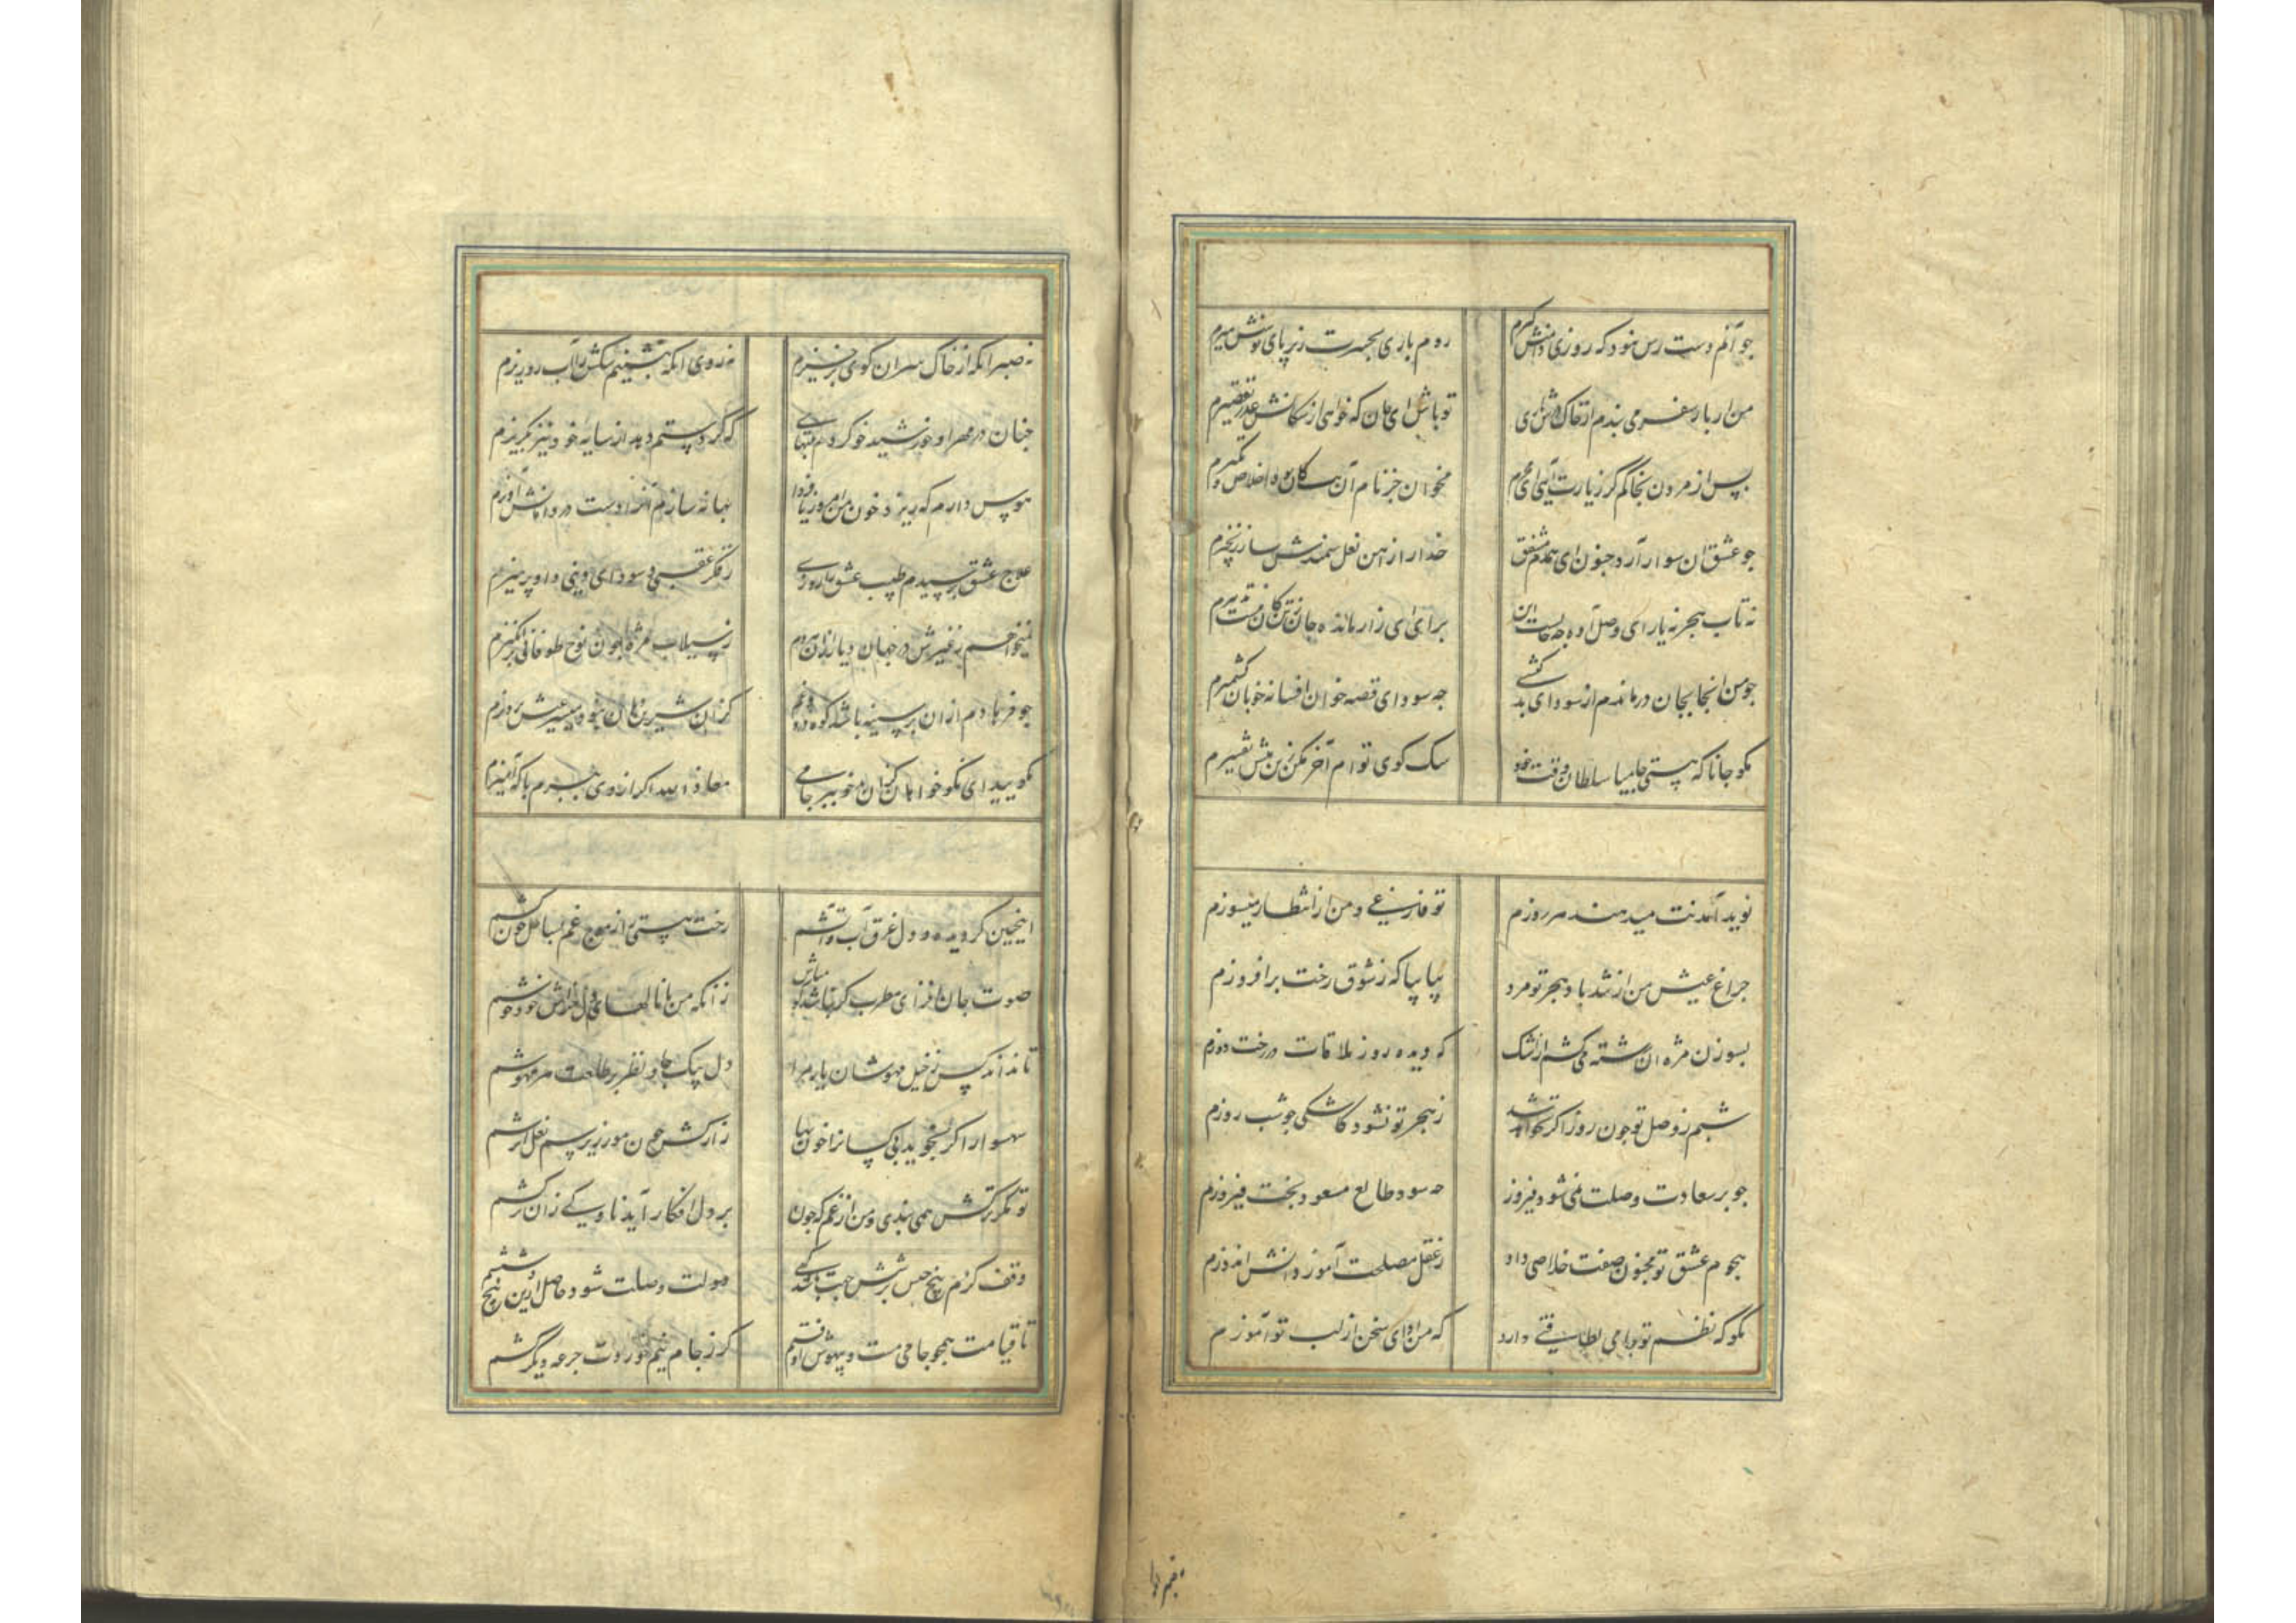 چو آنم دست رس نبود که روزی دامنش گیرم
روم باری بحسرت زیر پای توسنش میرم
من ار بار سفر می بندم از خاک درش ای
تو باش ای جان که خواهی از سکانش عذر تقصیرم
پس از مردن بخاکم گر زیارت آیی ای محرم
مخوان جز نام آن و اخلاص و تکبیرم
چو عشق ان سوار آرد جنون ای همدم مشفق
خدا را از آهن نعل سمندش ساز زنجیرم
نه تاب هجر نه یارای وصل آوه چه حالست این
برای ای زار مانده جان ز تن کان نیست تدبیرم
چو من انجا بجان درماندم از سودای بد کشی
چه سود ای قصه خوان افسانه خوبان کشمیرم
مکو جاناکه هستی جامیا سلطان وقت خود
سک کوی توام آخر مکن زین بیش تغییرم
نوید آمدنت میدهند هر روزم
تو فارغی و من از انتظار میسوزم
چراغ عیش من از تندباد هجر تو مرد
بیا بیا که ز شوق رخت برافروزم
بسوزن مژه ان رشته می کشم از اشک
که دیده روز ملاقات در رخت دوزم
شبم ز وصل تو چون روز اکر نخواهد شد
ز هجر تو نشود کاشکی چو شب روزم
چو بر سعادت وصلت نمی شود فیروز
چه سود طالع مسعود و بخت فیروزم
هجوم عشق تو مجنون صفت خلاصی داد
ز عقل مصلحت آموز و دانش اندوزم
مکو که نظم تو جامی لطافتی دارد
که من ادای سخن از لب تو آموزم
نه صبر انکه از خاک سر ان کوی برخیزم
نه روی انکه بنشینم سکش را آب رو ریزم
چنان در مهر او خورشید خو کردم بتنهایی
که گر دستم دهد از سایه خود نیز بگریزم
هوس دارم که ریزد خون من امروز تا فردا
بهانه سازم آنرا دست در دامانش آویزم
علاج عشق پرسیدم طبیب عشق را روزی
ز فکر عقبی و سودای دنیی داد پرهیزم
نمیخواهم بغیرش در جهان دیار ازان هردم
ز سیلاب مژه چون نوح طوفانی برانگیزم
چو فرهادم ازان بر سینه باشد کوه درد و غم
کزان شیرین زبان نبود میسر عیش پرویزم
مگویید ای نکو خواهان کزان بدخو ببر جامی
معاذ الله اکر از وی ببرم با که آمیزم
اینچنین کز دیده و دل غرق آب و آتشم
رخت هستی را ز موج غم بساحل چون کشم
صوت جان افزای مطرب کر نباشد کو مباش
زانکه من با ناله‌های دل خراش خود خوشم
تا نداند کس ز خیل مهوشان یار مرا
دل بیک جا و نظر بر طلعت هر مهوشم
شهسوارا کر نجوید بی کسانرا خون بها
زار کش چون مور زیر سم نعل ابرشم
تو کمر ترکش همی بندی و من از غم که چون
بر دل افکار آید ناوکی زان ترکشم
وقف کردم پنج حس بر شش جهت باشد کهی
دولت وصلت شود حاصل ازین پنج و ششم
تا قیامت همچو جامی مست و بیهوش اوفتم
کر ز جام نیم خوردت جرعه دیگر کشم